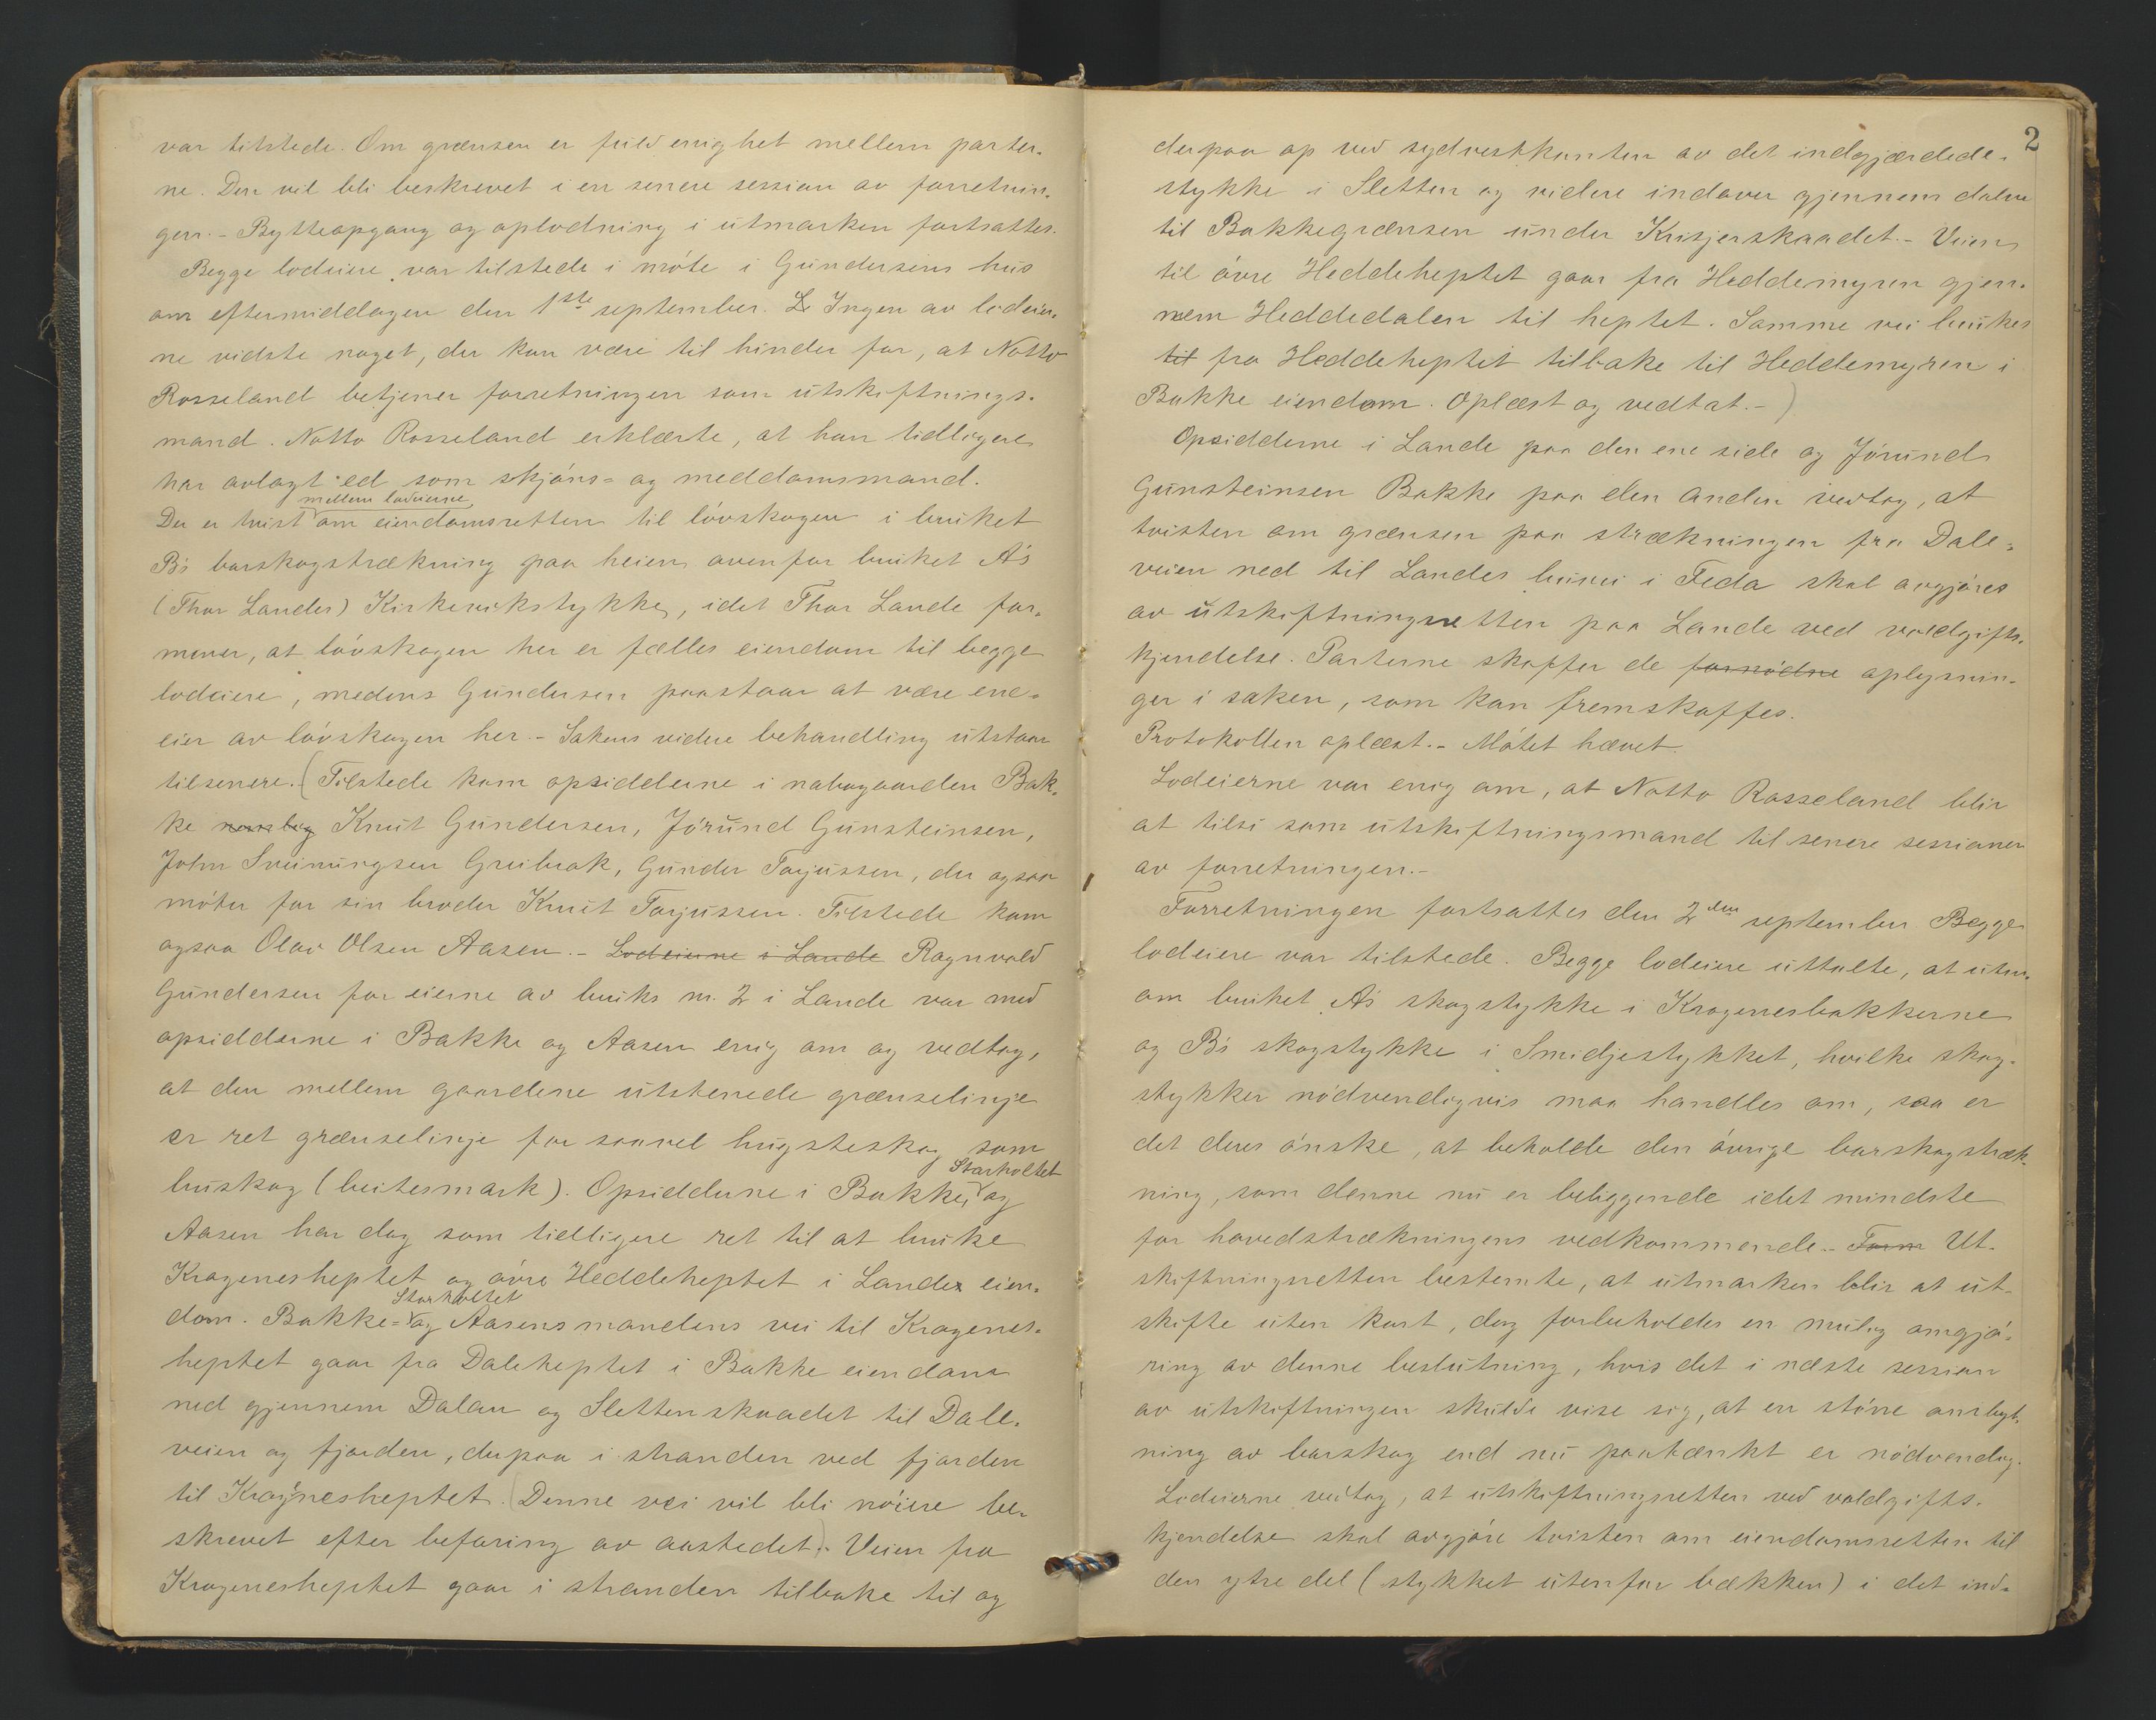 var tilstede. Om grænsen er fuld enighet mellem parter-
ne. Den vil bli beskrevet i en senere session av forretnin-
gen. - Bytteopgang og oplodning i utmarken fortsattes.
Begge lodeiere var tilstede i møte i Gundersens hus
om eftermiddagen den 1ste september. Ingen av lodeier-
ne vidste noget, der kan være til hinder for, at Notto
Rosseland betjener forretningen som utskiftnings-
mand. Notto Rosseland erklærte, at han tidligere
har avlagt ed som skjøns- og meddomsmand.
mellem lodeierne
Der er tvist om eiendomsretten til løvskogen i bruket
B's barskogstrækning paa heien ovenfor bruket A's
(Thor Landes) Kirkevikstykke, idet Thor Lande for-
mener, at løvskogen her er fælles eiendom til begge
lodeiere, medens Gundersen paastaar at være ene-
eier av løvskogen her. - Sakens videre behandling utstaar
tilsenere. (Tilstede kom opsidderne i nabogaarden Bak-
ke nemlig Knut Gundersen, Jørund Gunsteinsen,
John Sveinungsen Greibrok, Gunder Torjussen, der ogsaa
møter for sin broder Knut Torjussen. Tilstede kom
ogsaa Olav Olsen Aasen. - Lodeierne i Lande Ragnvald
Gundersen for eierne av bruks nr. 2 i Lande var med
opsidderne i Bakke og Aasen enig om og vedtog,
at den mellem gaardene utstenede grænselinje
er ret grænselinje for saavel hugsteskog som
Storholtet
buskog (beitesmark). Opsidderne i Bakke, og
Aasen har dog som tidligere ret til at bruke
Krogenesheptet og øvre Heddeheptet i Landes eien-
Storholtet
dom. Bakke- og Aasensmandens vei til Krogenes-
heptet gaar fra Daleheptet i Bakke eiendom
ned gjennem Dalen og Slettenskaadet til Dale-
veien og fjorden, derpaa i stranden ved fjorden
til Krogenesheptet. (Denne vei vil bli nøiere be-
skrevet efter befaring av aastedet). Veien fra
Krogenesheptet gaar i stranden tilbake til og
2
derpaa op ved sydvestkanten av det indgjærdede
stykke i Sletten og videre indover gjennem dalen
til Bakkegrænsen under Krisjerskaadet. - Veien
til øvre Heddeheptet gaar fra Heddemyren gjen-
nem Heddedalen til heptet. Samme vei brukes
til fra Heddeheptet tilbake til Heddemyren i
Bakke eiendom. Oplæst og vedtat. -)
Opsidderne i Lande paa den ene side og Jørund
Gunsteinsen Bakke paa den anden vedtog, at
tvisten om grænsen paa strækningen fra Dale-
veien ned til Landes buvei i Feda skal avgjøres
av utskiftningsretten paa Lande ved voldgifts-
kjendelse. Parterne skaffer de fornødne oplysnin-
ger i saken, som kan fremskaffes.
Protokollen oplæst. - Møtet hævet.
Lodeierne var enig om, at Notto Rosseland blir
at tilsi som utskiftningsmand til senere sessioner
av forretningen. -
Forretningen fortsattes den 2den september. Begge
lodeiere var tilstede. Begge lodeiere uttalte, at uten-
om bruket A's skogstykke i Krogenesbakkerne
og B's skogstykke i Smidjestykket, hvilke skog-
stykker nødvendigvis maa handles om, saa er
det deres ønske, at beholde den øvrige barskogstræk-
ning, som denne nu er beliggende idet mindste
for hovedstrækningens vedkommende. - Form Ut-
skiftningsretten bestemte, at utmarken blir at ut-
skifte uten kart, dog forbeholdes en mulig omgjø-
ring av denne beslutning, hvis det i næste session
av utskiftningen skulde vise sig, at en større ombyt-
ning av barskog end nu paatænkt er nødvendig.
Lodeierne vedtog, at utskiftningsretten ved voldgifts-
kjendelse skal avgjøre tvisten om eiendomsretten til
den ytre del (stykket utenfor bækken) i det ind-